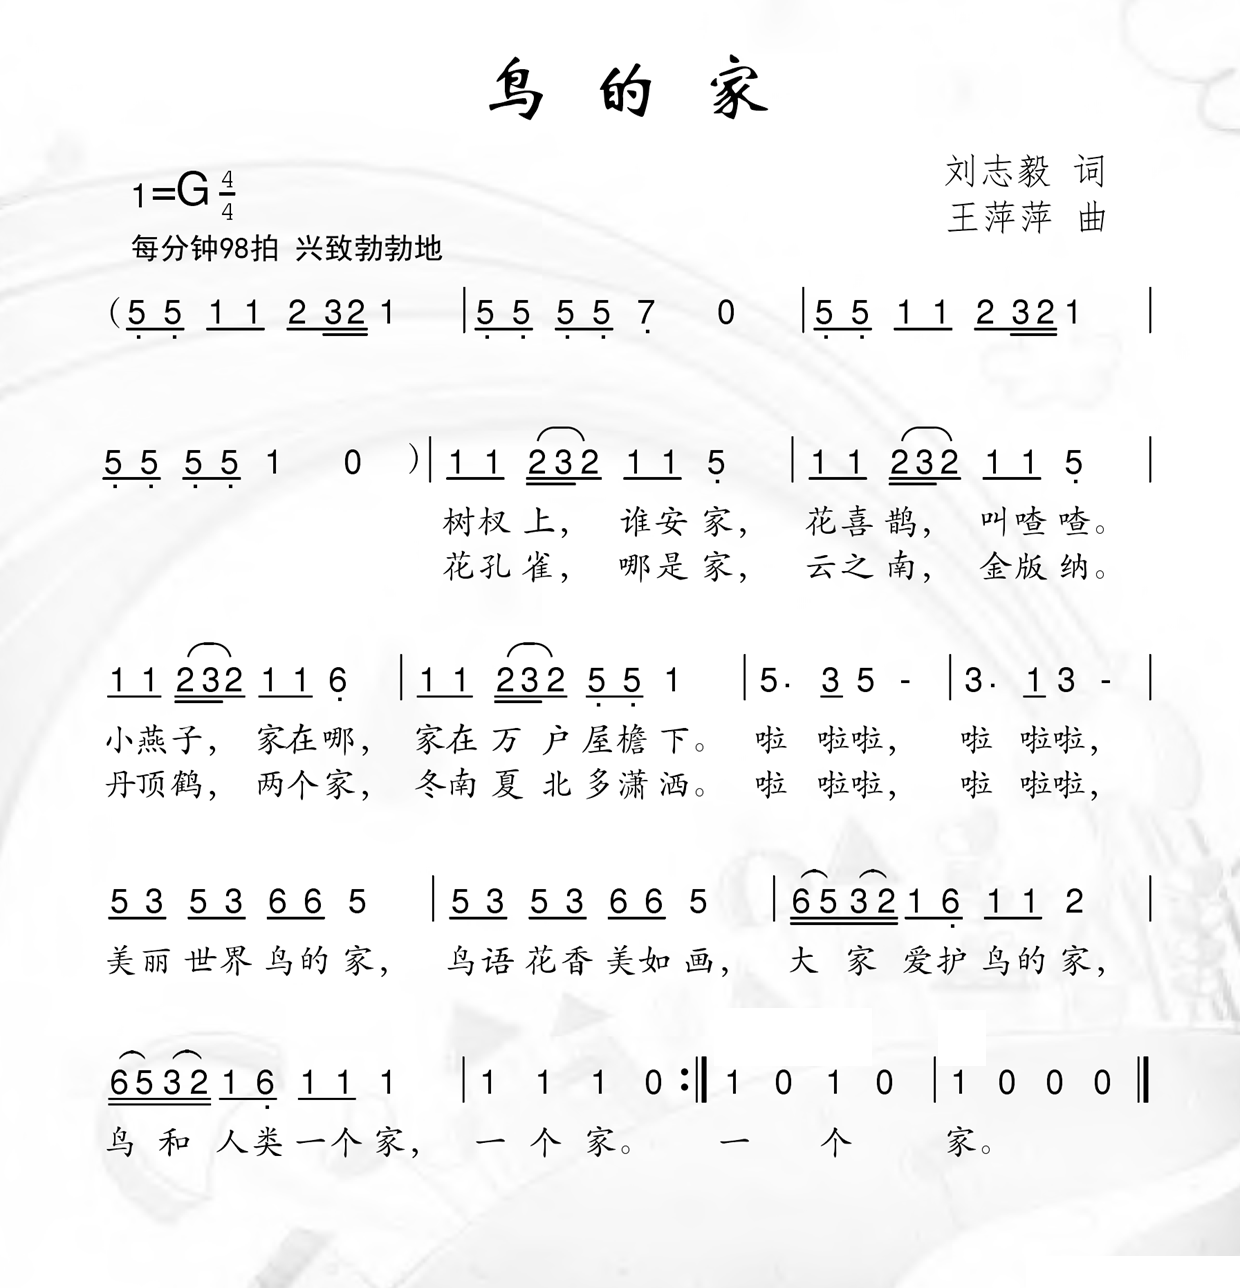 鸟的家
刘志毅 词
1=G 4/4
王萍萍 曲
每分钟98拍 兴致勃勃地
(5 5 1 1 2 32 1 | 5 5 5 5 7 0 | 5 5 1 1 2 32 1 |
5 5 5 5 1 0 )| 1 1 232 1 1 5 | 1 1 232 1 1 5 |
树杈上, 谁安家, 花喜鹊, 叫喳喳。
花孔雀, 哪是家, 云之南, 金版纳。
1 1 232 1 1 6 | 1 1 232 5 5 1 | 5· 3 5 - | 3· 1 3 - |
小燕子, 家在哪, 家在万户屋檐下。 啦 啦啦, 啦 啦啦,
丹顶鹤, 两个家, 冬南夏北多潇洒。 啦 啦啦, 啦 啦啦,
5 3 5 3 6 6 5 | 5 3 5 3 6 6 5 | 6532 1 6 1 1 2 |
美丽世界鸟的家, 鸟语花香美如画, 大家爱护鸟的家,
6532 1 6 1 1 1 | 1 1 1 0 :‖ 1 0 1 0 | 1 0 0 0 ‖
鸟和人类一个家, 一个家。 一个家。